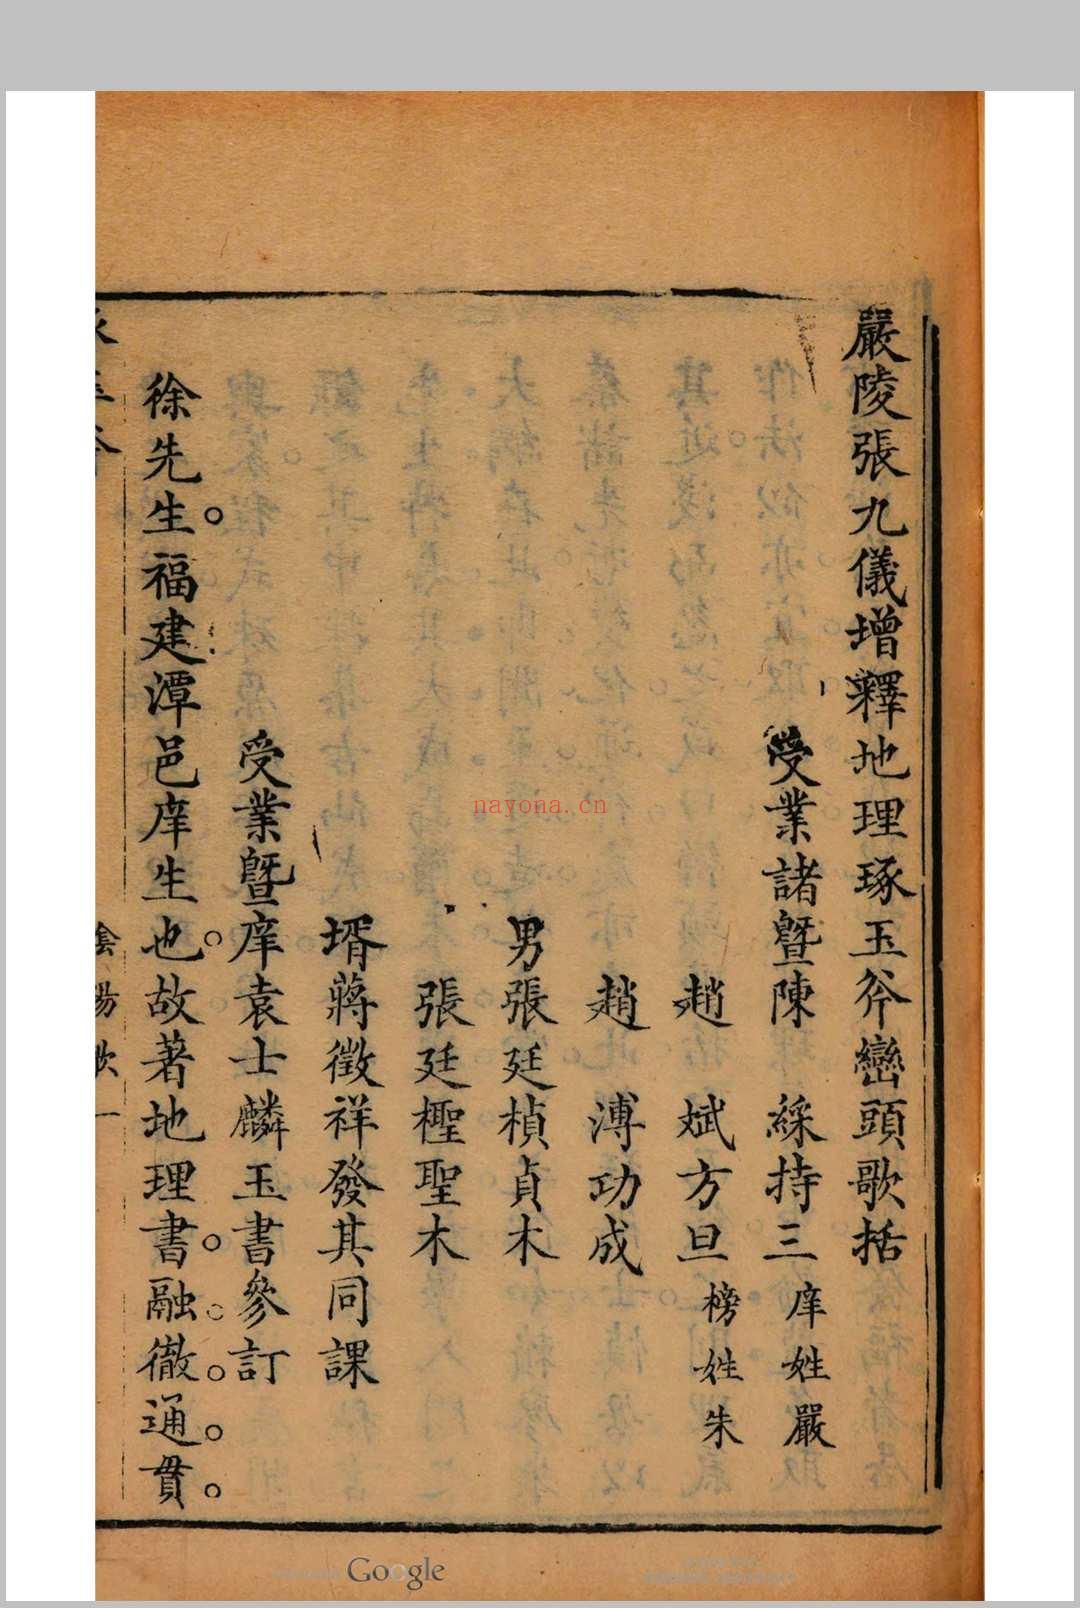 嚴陵張九儀增釋地理琢玉斧巒頭歌括
受業諸暨陳綵持三庠姓嚴
趙斌方旦榜姓朱
趙溥功成
男張廷楨貞木
張廷檉聖木
壻蔣徵祥發其同課
受業暨庠袁士麟玉書參訂
徐先生。福建潭邑庠生也。故著地理書。融徹。通。貫。
陰陽歌一
nayona.cn
Google